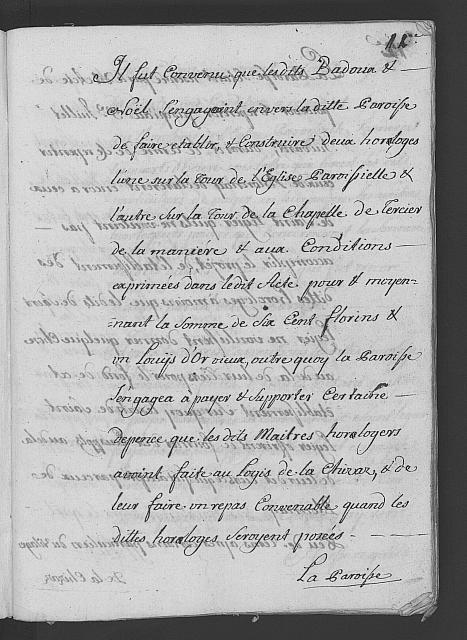 Il fut Convenu que lesdits Badoux &
Noël s'engageoint envers la ditte Paroisse
de faire etablir, & Construire deux horologes
l'une sur la Tour de l'Eglise Paroissielle &
l'autre sur la Tour de la Chapelle de Tercier
de la maniere & aux Conditions
exprimées dans ledit Acte pour & moyen-
nant la somme de Six Cent florins &
un Louijs d'Or vieux, outre quoy la Paroisse
s'engagea à payer & supporter Certaine
Depence que lesdits Maitres horologers
avoint faite au logis de la Chizaz, & de
leur faire un repas Convenable quand les
dittes horologes seroyent posées
La Paroisse